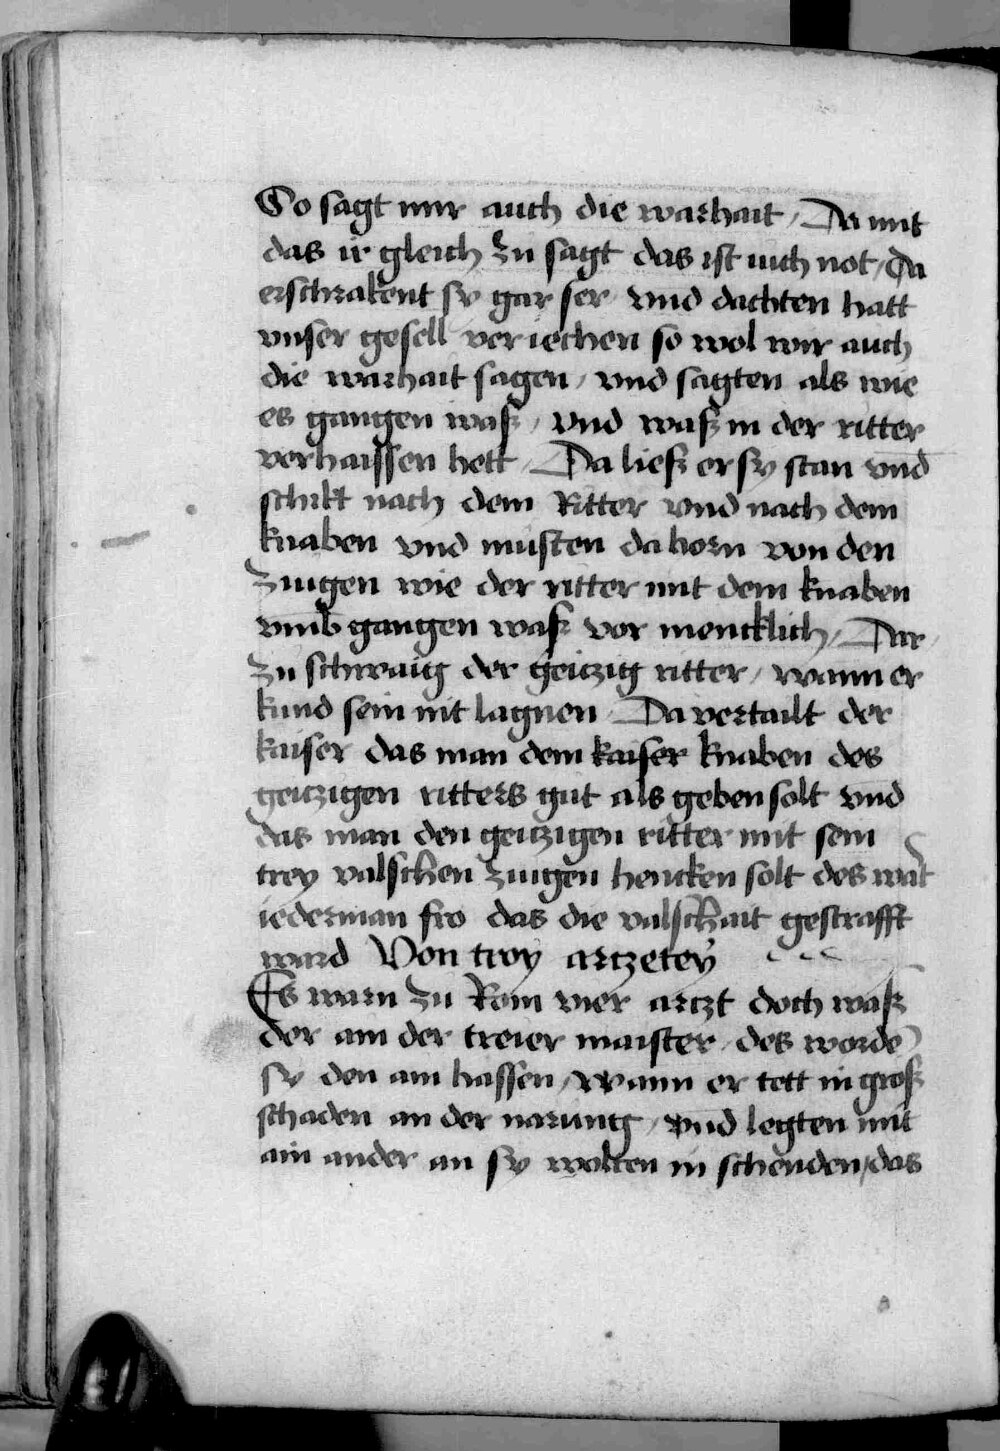 So sagt mir auch die warhait / Da mit
das ir gleich zu sagt das ist iuch not / Da
erschrakent sy gar ser vnd dachten hatt
vnser gesell veriechen so wol wir auch
die warhait sagen / vnd sagten als wie
es gangen waß / vnd waß in der ritter
verhaissen hett / Da ließ er sy stan vnd
schikt nach dem Ritter vnd nach dem
knaben vnd musten da horn von den
zugen wie der ritter mit dem knaben
vmb gangen waß vor mencklich / Dar
zu schwaig der geitzig ritter / wann er
kund sein nit lagnen Da vertailt der
kaiser das man dem kaiser knaben des
geitzigen ritters gut als geben solt vnd
das man den geitzigen ritter mit sein
trey valschen zugen hencken solt des wart
iederman fro das die valschait gestrafft
ward Von troy artzetey
Es warn zu Rom vier artzt doch waß
der ain der treier maister / des worde
sy den ain hassen / wann er tett in groß
schaden an der narung / vnd legten mit
ain ander an sy wolten in schenden / das